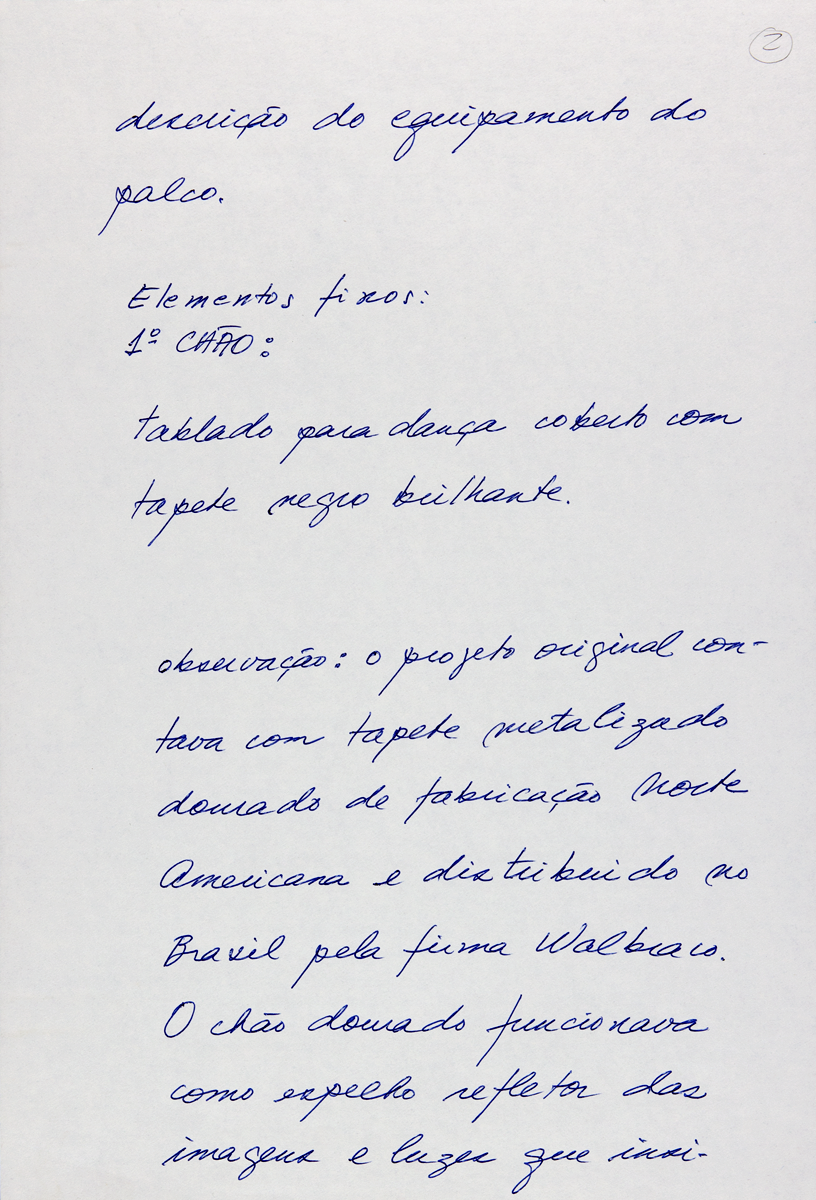 2
descrição do equipamento do
palco.
Elementos fixos:
1º CHÃO:
tablado para dança coberto com
tapete negro brilhante.
observação: o projeto original con-
tava com tapete metalizado
dourado de fabricação Norte
Americana e distribuido no
Brasil pela firma Walbraco.
O chão dourado funcionava
como espelho refletor das
imagens e luzes que insi-